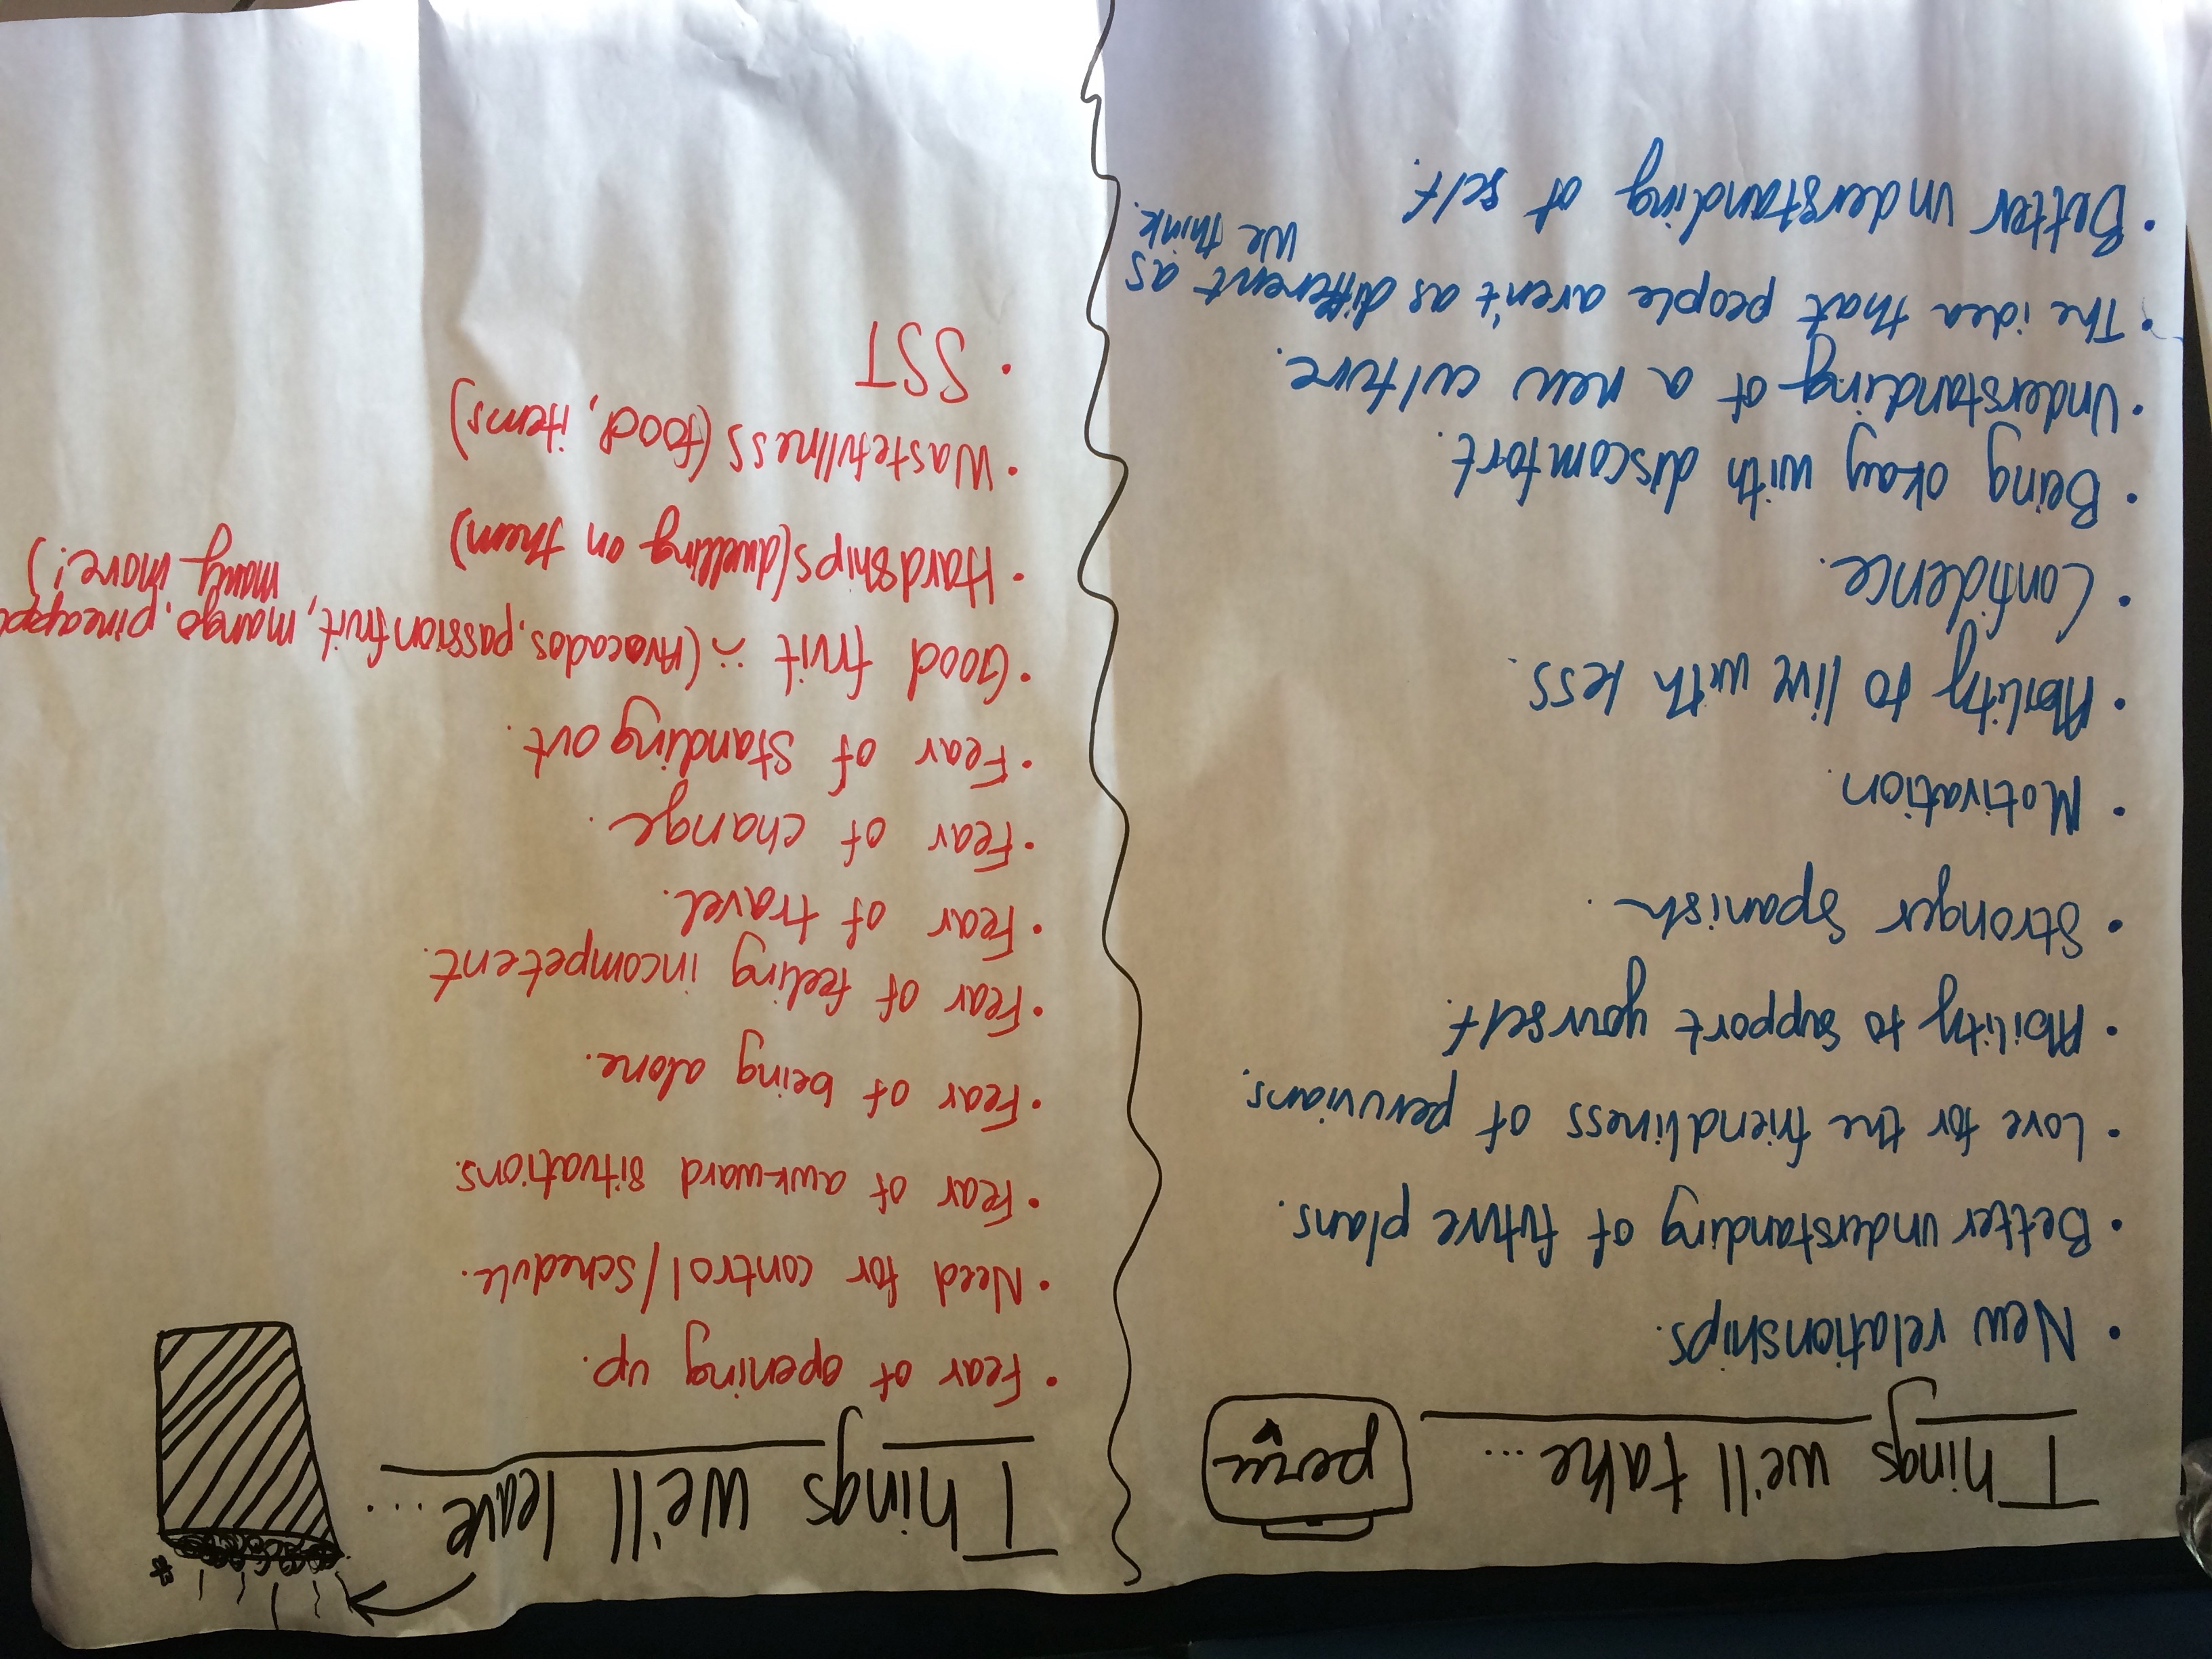 Things we'll take...
perú
• New relationships.
• Better understanding of future plans.
• Love for the friendliness of peruvians.
• Ability to support yourself.
• Stronger Spanish.
• Motivation.
• Ability to live with less.
• Confidence.
• Being okay with discomfort.
• Understanding of a new culture.
• The idea that people aren't as different as
we think.
• Better understanding of self.
Things we'll leave....
• Fear of opening up.
• Need for control/schedule.
• Fear of awkward situations.
• Fear of being alone.
• Fear of feeling incompetent.
• Fear of travel.
• Fear of change.
• Fear of standing out.
• Good fruit :( (Avocados, passionfruit, mango, pineapple
many more!)
• Hardships (dwelling on them)
• Wastefullness (food, items)
• SST